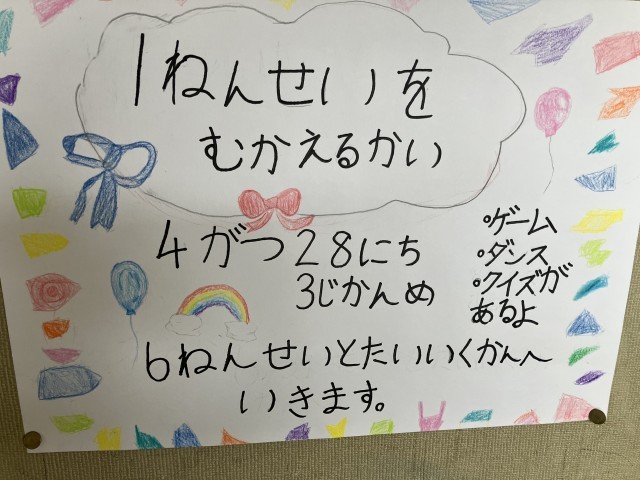 1ねんせいを
むかえるかい
4がつ28にち
3じかんめ
・ゲーム
・ダンス
・クイズが
あるよ
6ねんせいとたいいくかんへ
いきます。